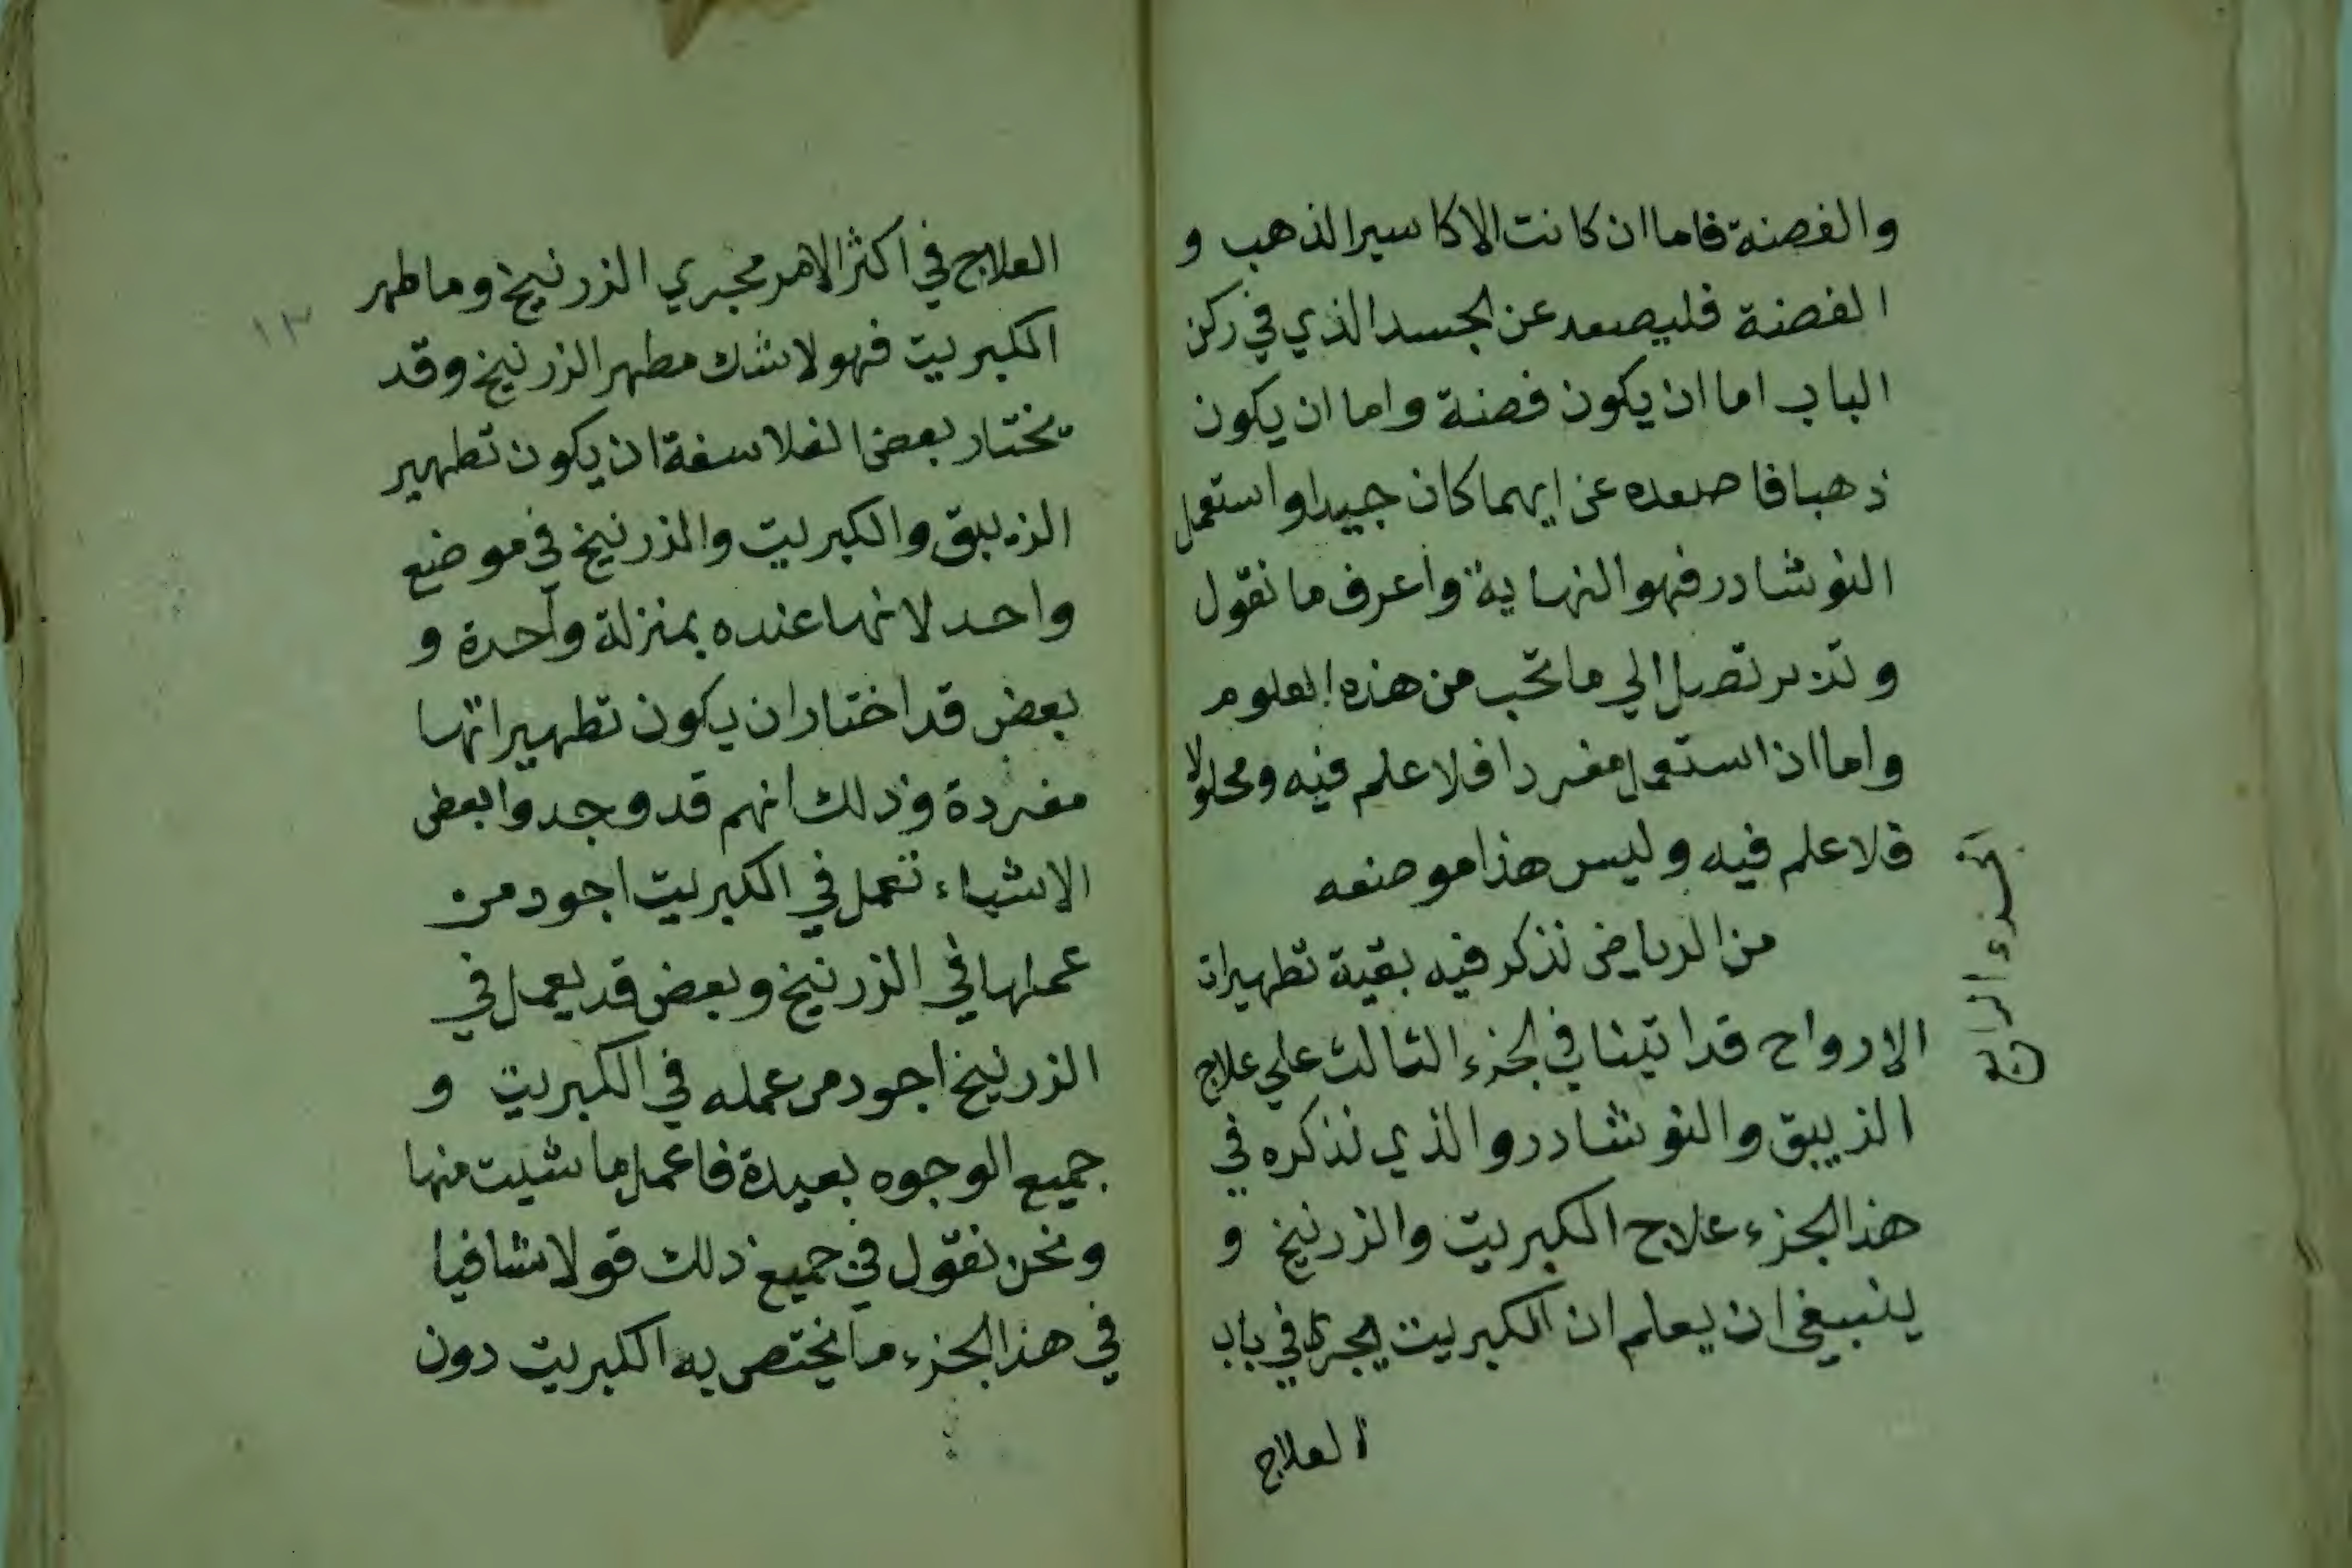 والفضة فاما ان كانت الاكاسير الذهب و
الفضة فليصعد عن الجسد الذي في ركن
الباب اما ان يكون فضة واما ان يكون
ذهبا فاصعده عن ايهما كان جيدا واستعمل
النوشادر فهو النهاية واعرف ما نقول
وتدبر تصل الي ما تحب من هذه العلوم
واما اذا استعمل مفردا فلا علم فيه ومحلولا
فلا علم فيه وليس هذا موضعه
من الرياض نذكر فيه بقية تطهيرات
الارواح قد اتينا في الجزء الثالث علي علاج
الزيبق والنوشادر والذي نذكره في
هذا الجزء علاج الكبريت والزرنيخ و
ينبغي ان يعلم ان الكبريت يجري في باب
العلاج
الجزء الرابع
١٣
العلاج في اكثر الامر مجري الزرنيخ وما طهر
الكبريت فهو لا شك مطهر الزرنيخ وقد
يختار بعض الفلاسفة ان يكون تطهير
الزيبق والكبريت والزرنيخ في موضع
واحد لانها عنده بمنزلة واحدة و
بعض قد اختار ان يكون تطهيراتها
مفردة وذلك انهم قد وجدوا بعض
الاشياء تعمل في الكبريت اجود من
عملها في الزرنيخ وبعض قد يعمل في
الزرنيخ اجود من عمله في الكبريت و
جميع الوجوه بعيدة فاعمل ما شيت منها
ونحن نقول في جميع ذلك قولا شافيا
في هذا الجزء ما يختص به الكبريت دون